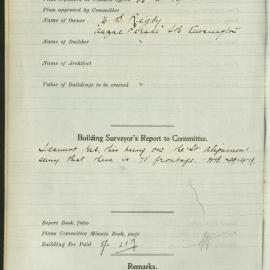 Plan approved by Committee
Name of Owner E. B. Rigby
Anzac Parade Sth Kensington
Name of Builder "
Name of Architect
Value of Buildings to be erected "
Building Surveyor's Report to Committee.
I cannot see this being on the St alignment
seeing that there is 70' frontage.
Report Book, folio
Plans Committee Minute Book, page
Building Fee Paid
Remarks.